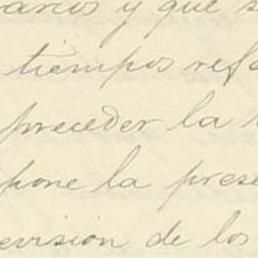 arios y que s
tiempos refo
preceder la
pone la prese
evisión de los